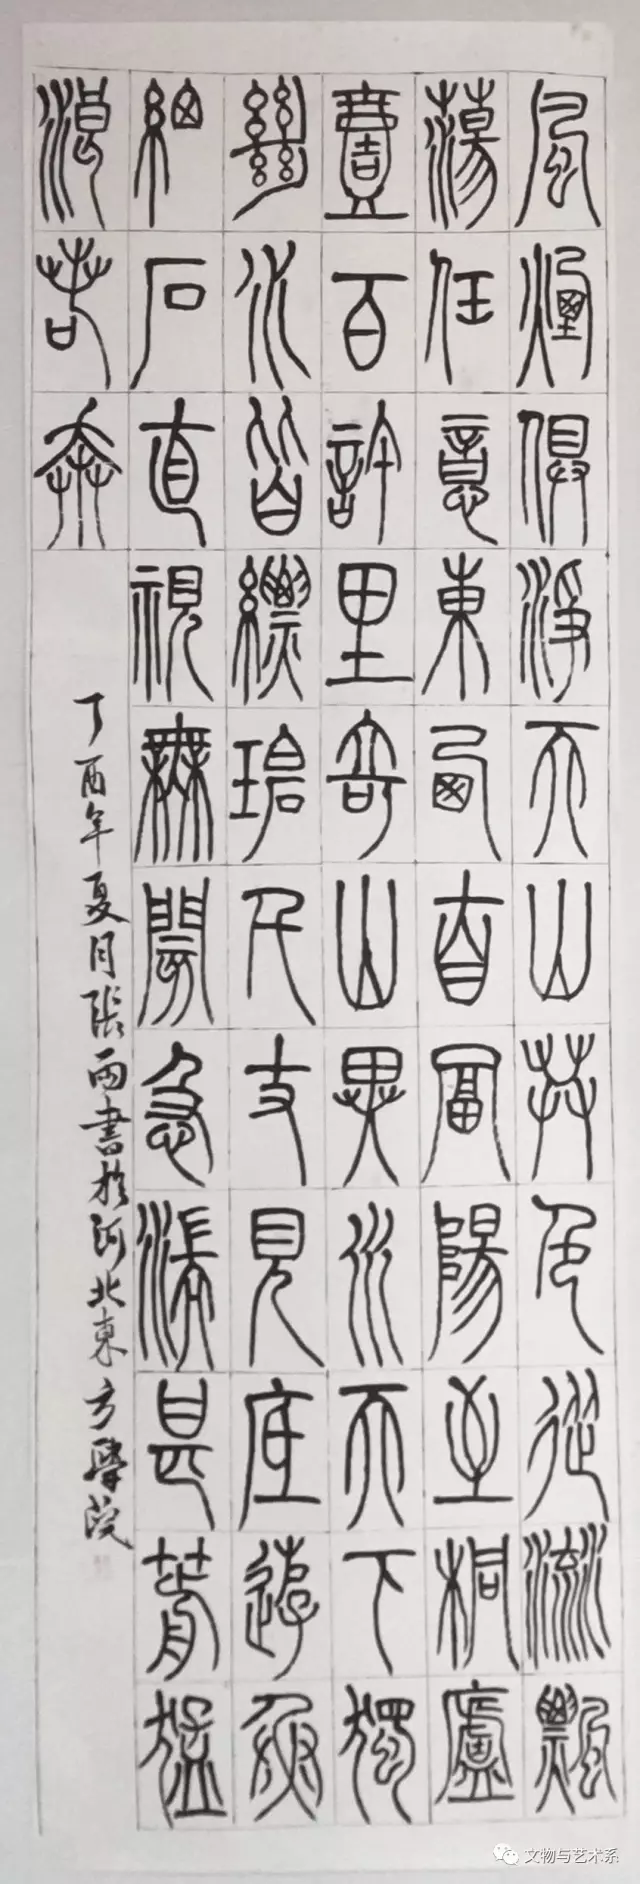 風煙俱淨天山共色從流飄
蕩任意東西自富陽至桐廬
壹百許里奇山異水天下獨
絕水皆縹碧千丈見底遊魚
細石直視無閡急湍甚箭猛
浪若奔
丁酉年夏月張雨書於河北東方學院
文物与艺术系